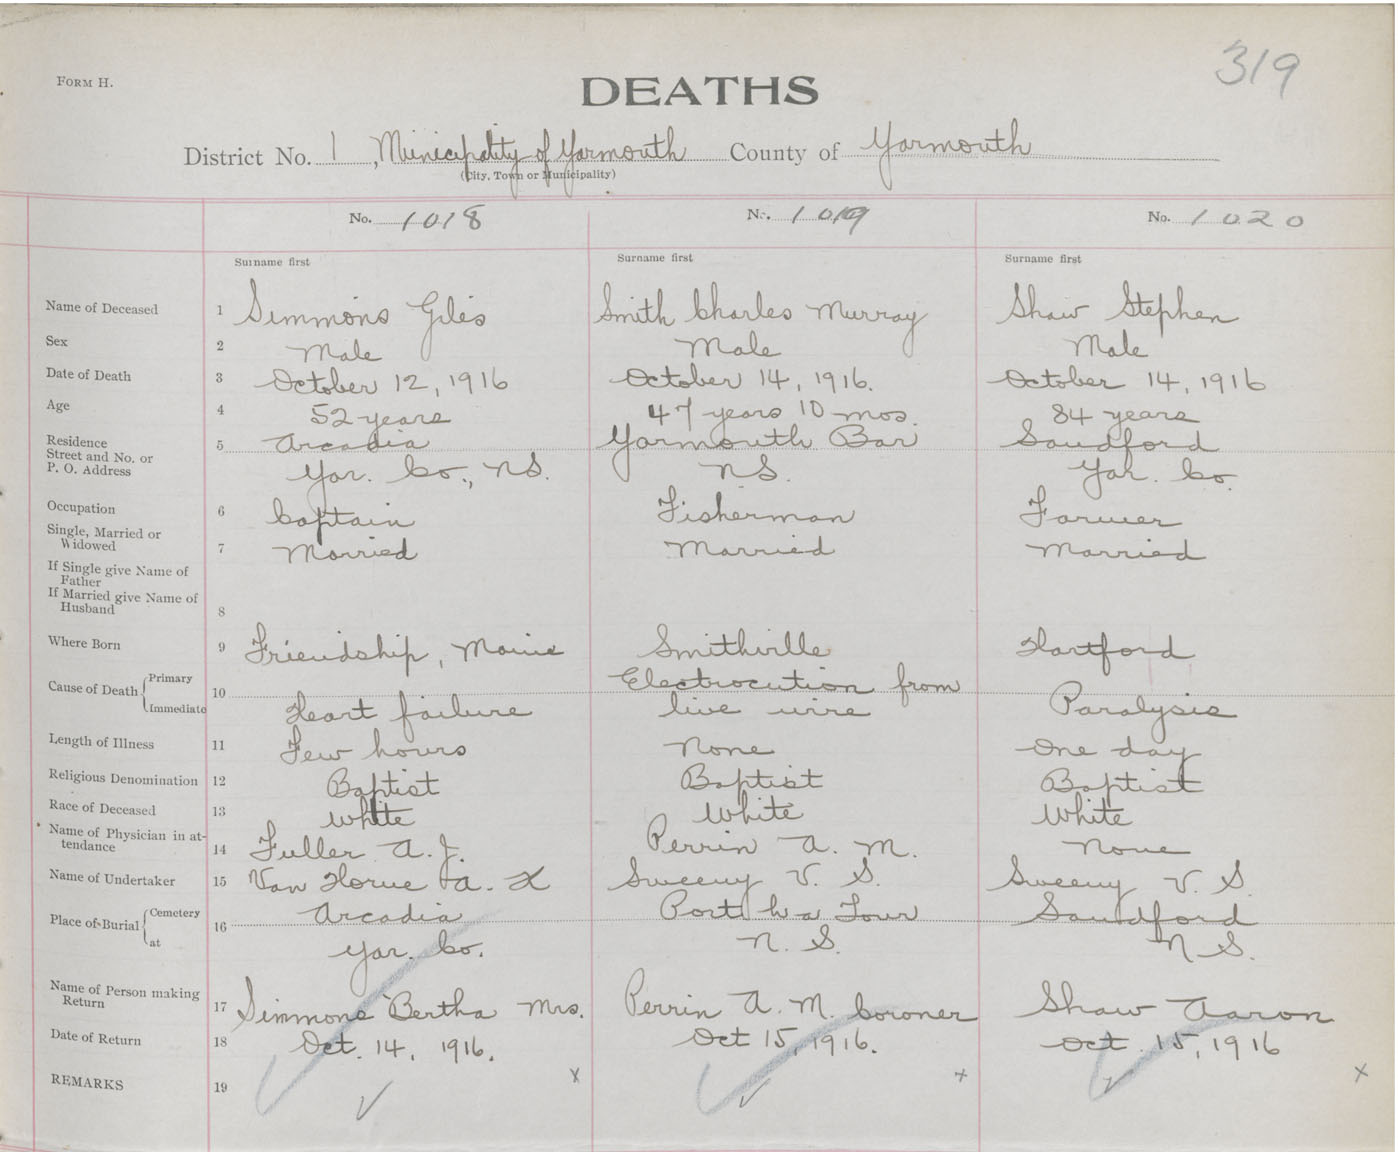 319
FORM H.
DEATHS
District No. 1, Municipality of Yarmouth County of Yarmouth
(City, Town or Municipality)
No. 1018 No. 1019 No. 1020
Surname first Surname first Surname first
Name of Deceased 1 Simmons Giles Smith Charles Murray Shaw Stephen
Sex 2 Male Male Male
Date of Death 3 October 12, 1916 October 14, 1916. October 14, 1916
Age 4 52 years 47 years 10 mos. 84 years
Residence 5 Arcadia Yarmouth Bar Sandford
Street and No. or
P. O. Address Yar. Co., N.S. N.S. Yar. Co.
Occupation 6 Captain Fisherman Farmer
Single, Married or
Widowed 7 Married Married Married
If Single give Name of
Father
If Married give Name of
Husband 8
Where Born 9 Friendship, Maine Smithville Hartford
Cause of Death { Primary 10 Electrocution from
Immediate Heart failure live wire Paralysis
Length of Illness 11 Few hours None One day
Religious Denomination 12 Baptist Baptist Baptist
Race of Deceased 13 White White White
Name of Physician in at-
tendance 14 Fuller A. J. Perrin A. M. None
Name of Undertaker 15 Van Horne A. Sweeny V. S. Sweeny V. S.
Place of Burial { Cemetery 16 Arcadia Port La Tour Sandford
at Yar. Co. N. S. N S.
Name of Person making
Return 17 Simmons Bertha Mrs. Perrin A. M. Coroner Shaw Aaron
Date of Return 18 Oct. 14, 1916. Oct 15, 1916. Oct. 15, 1916
REMARKS 19 x ✓ x ✓ x ✓